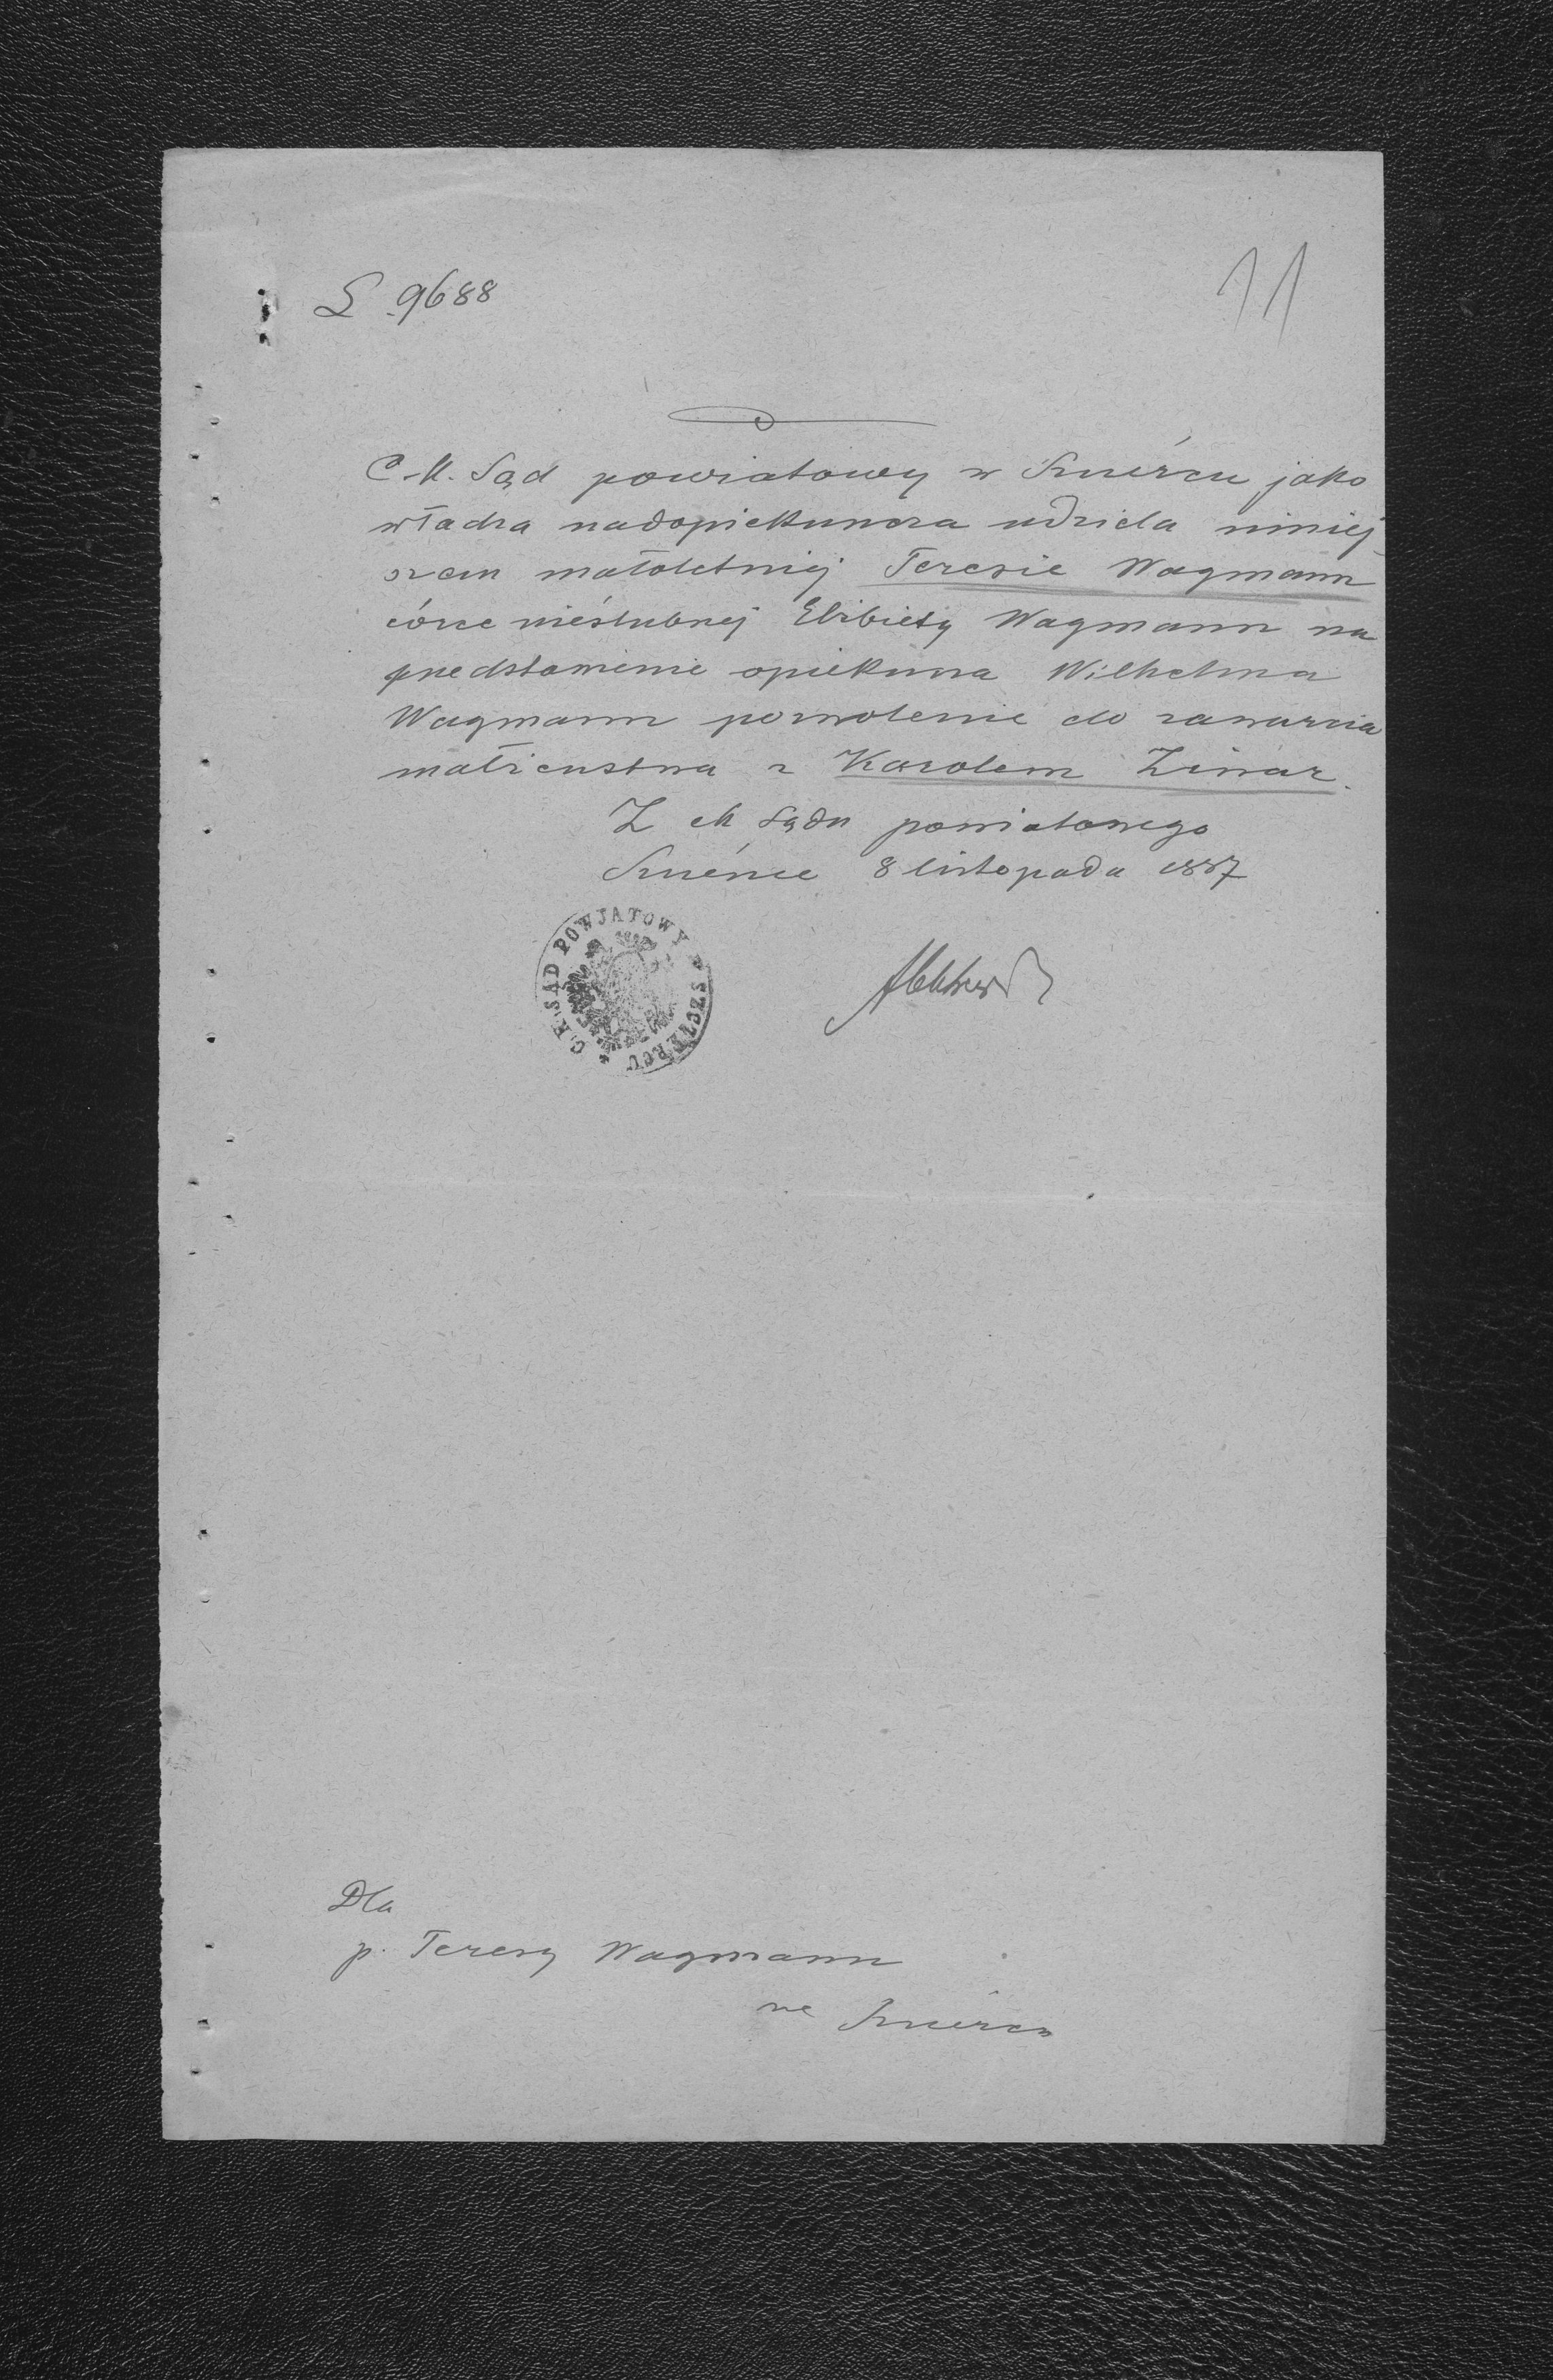 L 9688
11
C. K. Sąd powiatowy w Szczércu jako
władza nadopiekuncza udziela niniej-
szem małoletniej Teresie Wagmann
córce nieślubnej Elżbiety Wagmann na
przedstawienie opiekuna Wilhelma
Wagmann pozwolenie do zawarcia
małżenstwa z Karolem Zinar.
Z ck Sądu powiatowego
Szczérzec 8 listopada 1887
C. K. SĄD POWJATOWY w SZCZERCU
Dla
p. Teresy Wagmann
we Szczércu